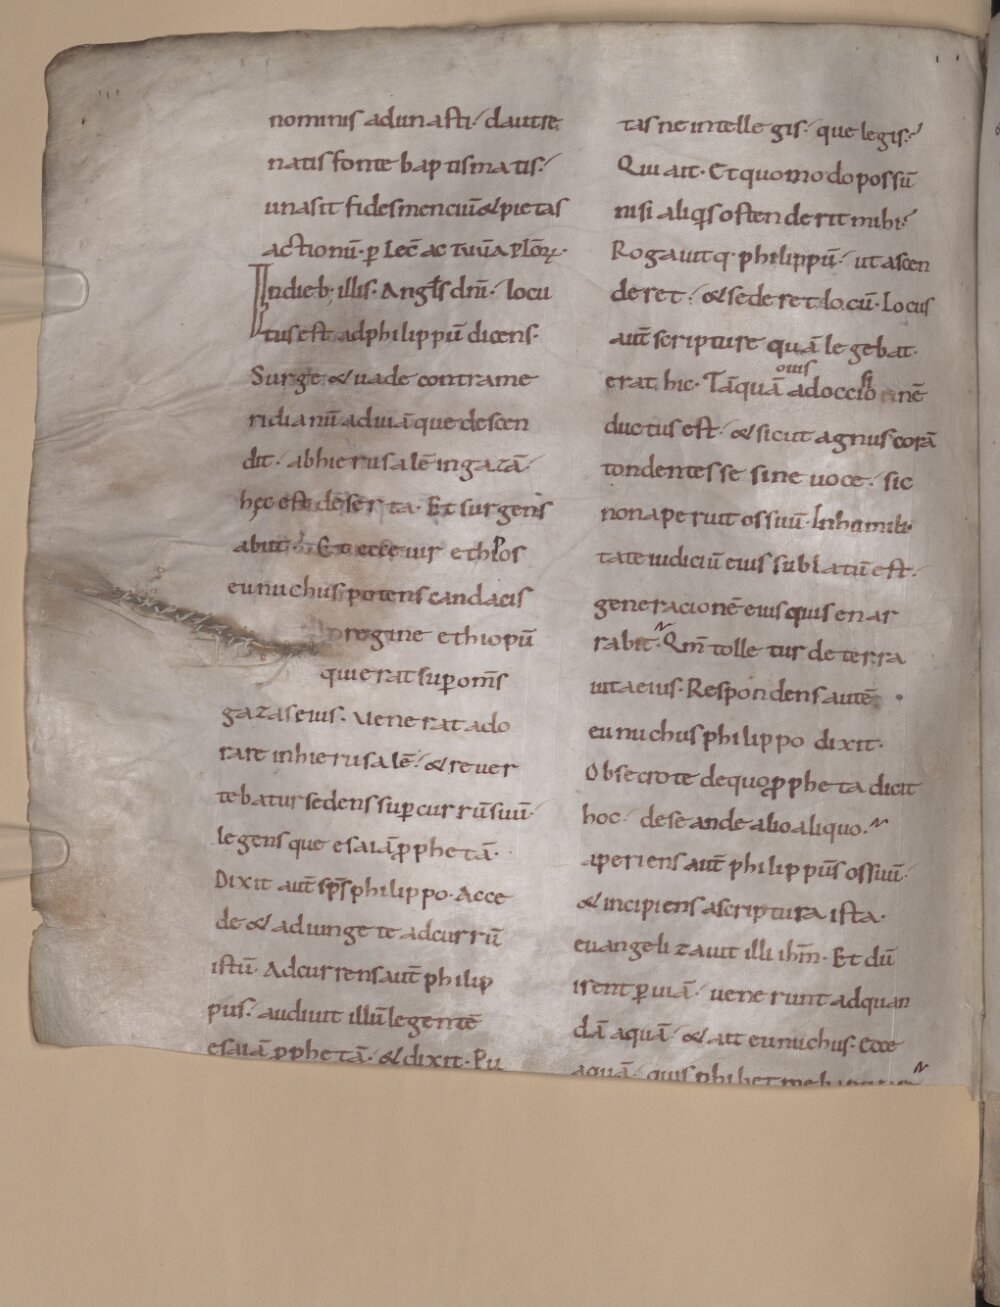 nominis adunasti. da ut re
natis fonte baptismatis.
una sit fides menciū & pietas
actionū. p̲ Lec̄ ac tuū ap̄lōꝝ.
In dieb; illis. Angl̄s dn̄i. locu
tus est ad philippū dicens.
Surge & uade contra me
ridianū ad uiā que descen
dit. ab hierusalē in gazā.
hęc est deserta. Et surgens
abiit. Et ecce uir ethi͛ops
eunuchus potens candacis
regine ethiopū
qui erat sup̲ om̄s
gazas eius. uenerat ado
rare in hierusalē. & reuer
tebatur sedens sup̲ currū suū.
legensque esaiā ꝓphetā.
Dixit aut̄ sp̄s philippo. Acce
de & adiunge te ad currū
istū. Adcurrens aut̄ philip
pus. audiuit illū legentē
esaiā ꝓphetā. & dixit. Pu
tasne intellegis. que legis?
Qui ait. Et quomodo possū
nisi aliq̇s ostenderit mihi?
Rogauitq. philippū. ut ascen
deret. & sederet locū. Locus
aut̄ scripture quā legebat.
erat hic. Tāquā ouis ad occisionē
ductus est. & sicut agnus corā
tondentes se sine uoce. sic
non aperuit os suū. In humili
tate iudiciū eius sublatū est.
generacionē eius quis enar
rabit. Qm̄ tolletur de terra
uita eius. Respondens autē
eunuchus philippo dixit.
Obsecro te de quo ꝓpheta dicit
hoc. de se an de alio aliquo.
aperiens aut̄ philippus os suū.
& incipiens a scriptura ista.
euangelizauit illi ih̄m. Et dū
irent p̲ uiā. uenerunt ad quan
dā aquā. & ait eunuchus. Ecce
aquā. quis phibet me